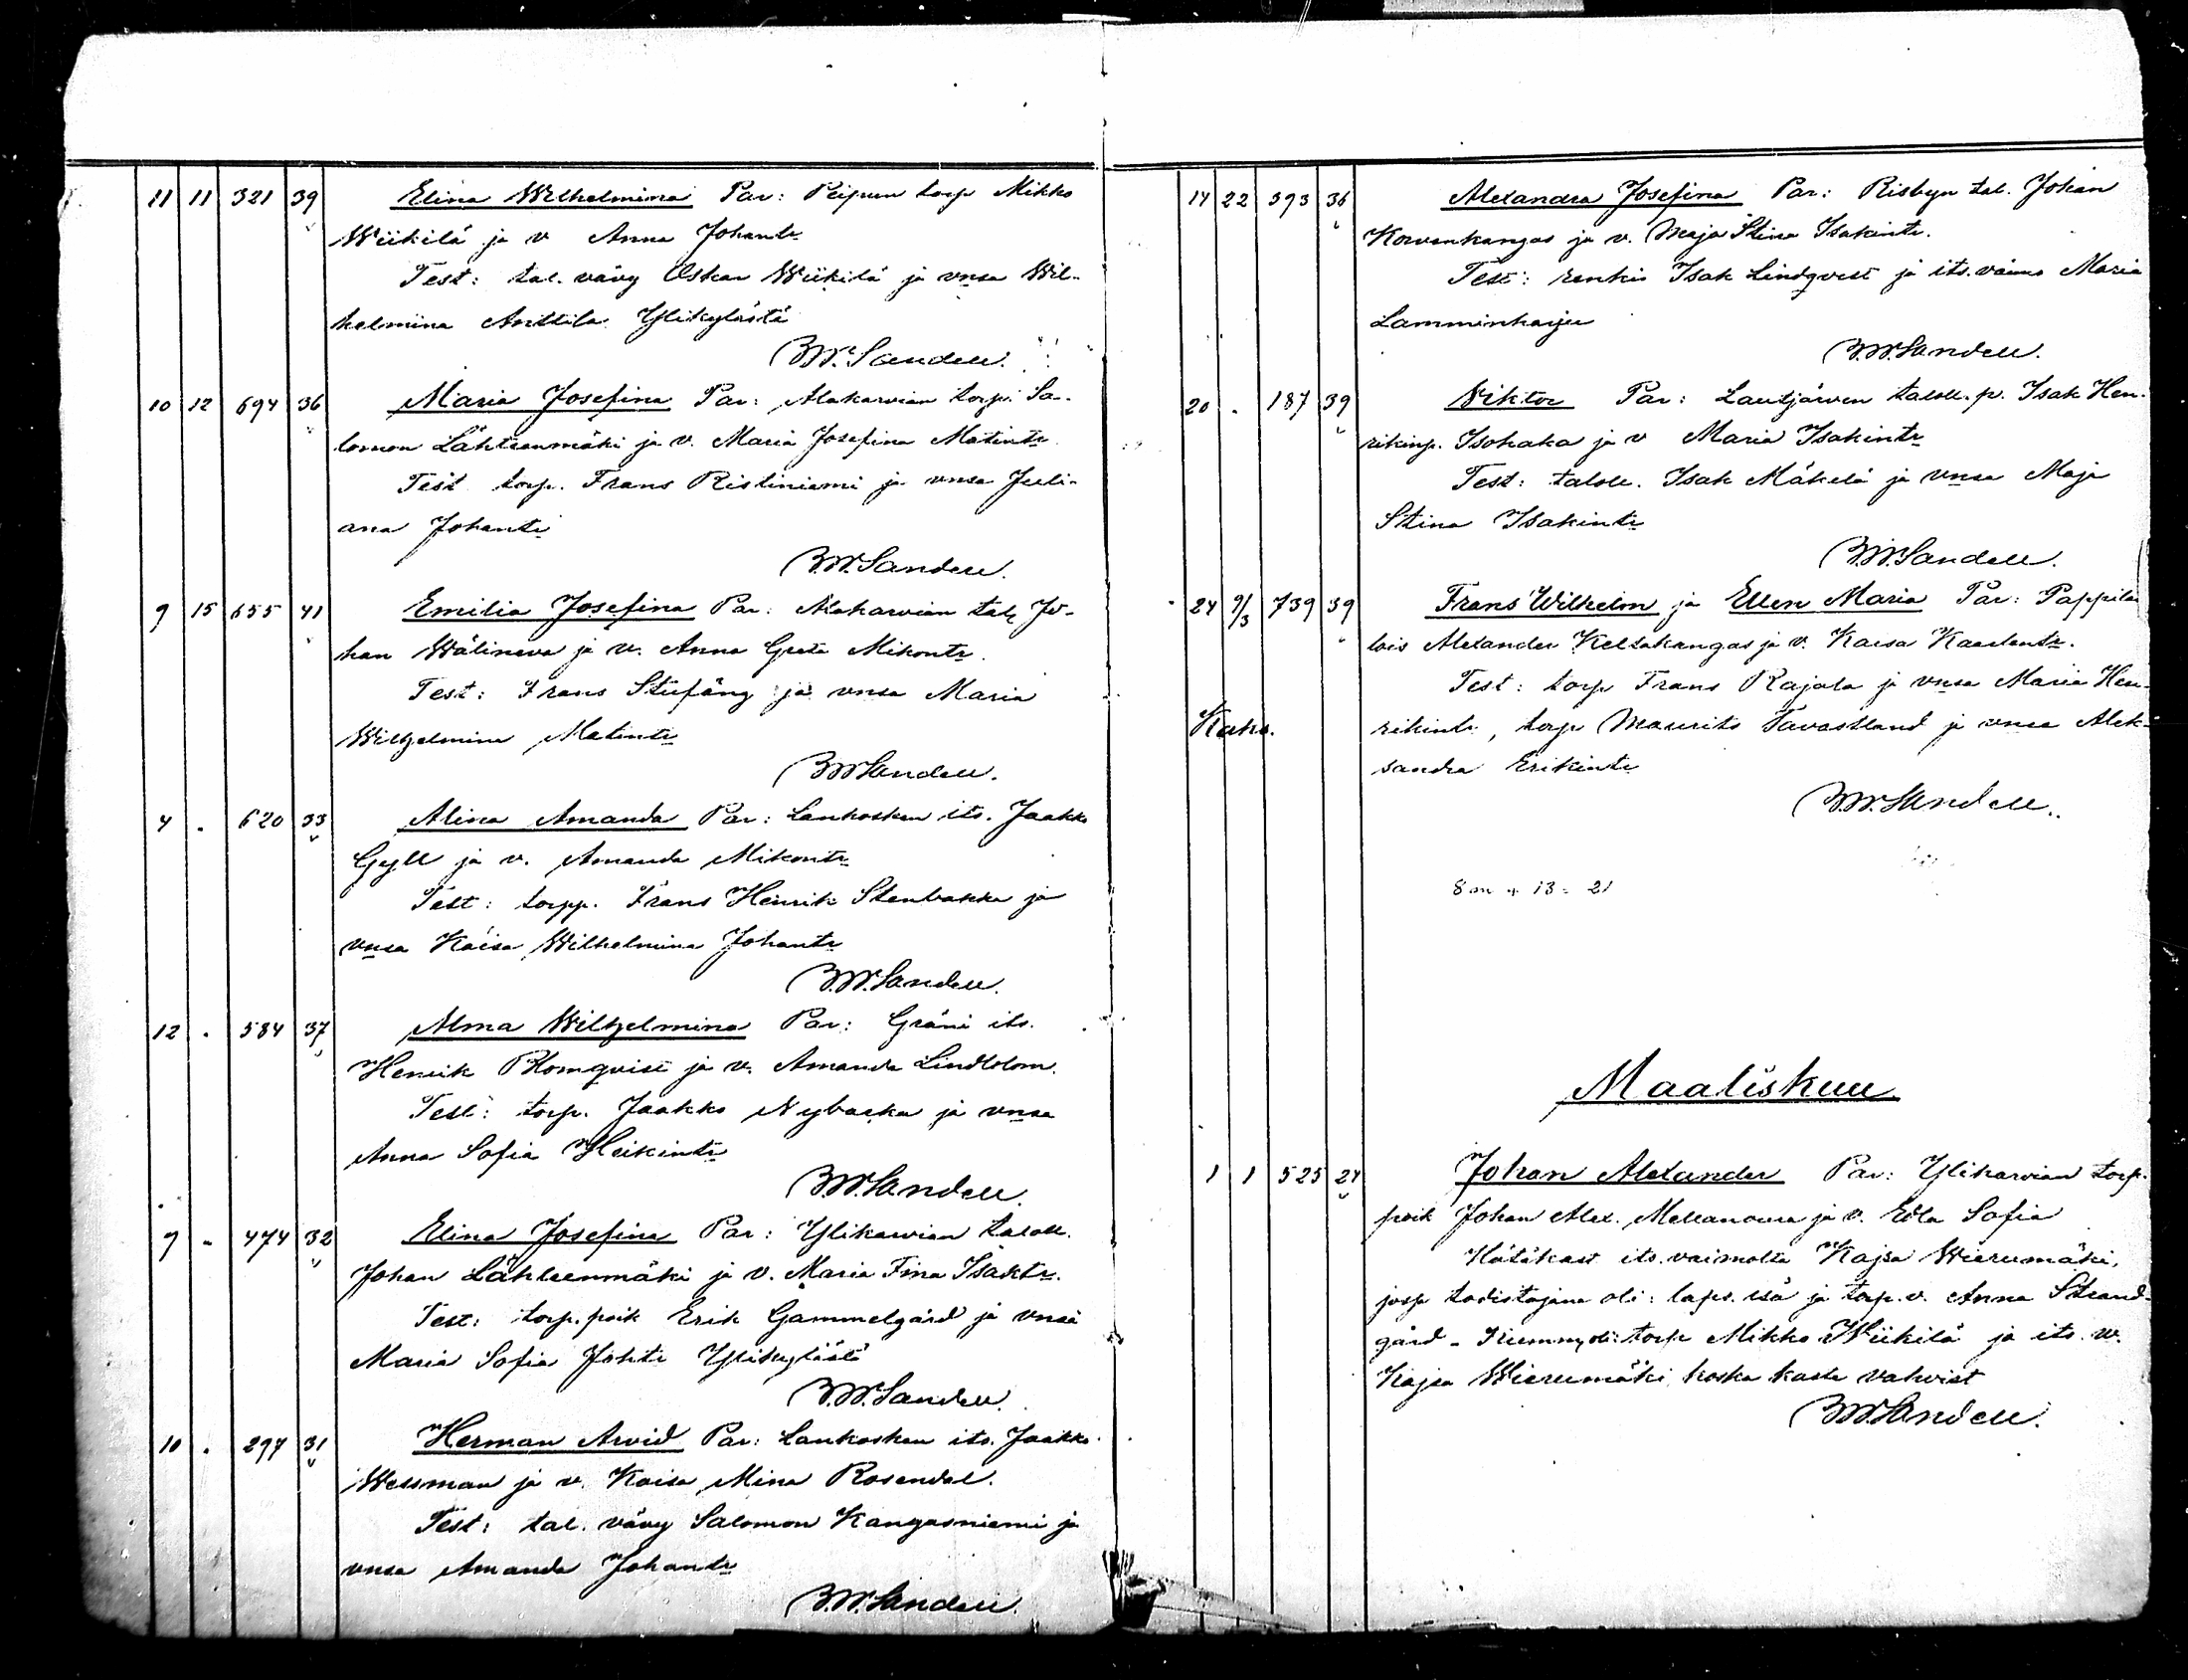 11 11 321 39 Elina Wilhelmina Par: Peipun torp Mikko
Wiikilä ja v Anna Johantr
Test: tal. vävy Oskar Wiikilä ja vnsa Wil-
helmina Anttila Ylikylästä
W. Sandell.
10 12 694 36 Maria Josefina Par: Alakarvian torp. Sa-
lomon Lähteenmäki ja v. Maria Josefina Matintr
Test torp. Frans Ristiniemi ja vnsa Juli-
ana Johantr
W. Sandell.
9 15 655 41 Emilia Josefina Par: Alakarvian tal. Jo-
han Wälineva ja v. Anna Greta Mikontr.
Test: Frans Stüfäng ja vnsa Maria
Wilhelmina Matintr
W. Sandell.
4 . 620 33 Alina Amanda Par: Lankosken its. Jaakko
Gyll ja v. Amanda Mikontr
Test: torpp. Frans Henrik Stenbakka ja
vnsa Kaisa Wilhelmina Johantr
W. Sandell.
12 . 584 37 Alma Wilhelmina Par: Gräni its.
Henrik Blomqvist ja v. Amanda Lindblom.
Test: torp. Jaakko Nybacka ja vnsa
Anna Sofia Heikintr
W. Sandell.
9 - 474 32 Elina Josefina Par: Ylikarvian taloll.
Johan Lähteenmäki ja v. Maria Fina Isaktr.
Test: torp. poik Erik Gammelgård ja vnsa
Maria Sofia Johtr Ylikylästä
W. Sandell.
10 . 297 31 Herman Arvid Par: Lankosken its. Jaakko
Wessman ja v. Kaisa Mina Rosendal.
Test: tal. vävy Salomon Kangasniemi ja
vnsa Amanda Johantr
W. Sandell.
14 22 393 36 Alexandra Josefina Par: Risbyn tal. Johan
Korvenkangas ja v. Maja Stina Isakintr.
Test: renki Isak Lindqvist ja its. vaimo Maria
Lamminharju
W. Sandell.
20 . 187 39 Viktor Par: Lautjärven taloll. p. Isak Hen-
rikinp. Isohaka ja v Maria Isakintr
Test: taloll. Isak Mäkelä ja vnsa Maja
Stina Isakintr
W. Sandell.
24 9/3 739 39 Frans Wilhelm ja Ellen Maria Par: Pappila
lois Alexander Keltakangas ja v. Kaisa Kaarlentr.
Test: torp Frans Rajala ja vnsa Maria Hen-
Kaks. rikintr, torp Maurits Tavastland ja vnsa Alek-
sandra Erikintr
W. Sandell.
8 m + 13 = 21
Maaliskuu
1 1 525 24 Johan Alexander Par: Ylikarvian torp.
poik Johan Alex. Mellanoura ja v. Edla Sofia
Hätäkast its. vaimolta Kajsa Wierumäki,
jossa todistajana oli: laps. isä ja torp. v. Anna Strand-
gård - Kummi oli: torp Mikko Wiikilä ja its. v.
Kajsa Wierumäki, koska kaste vahvist
W. Sandell.